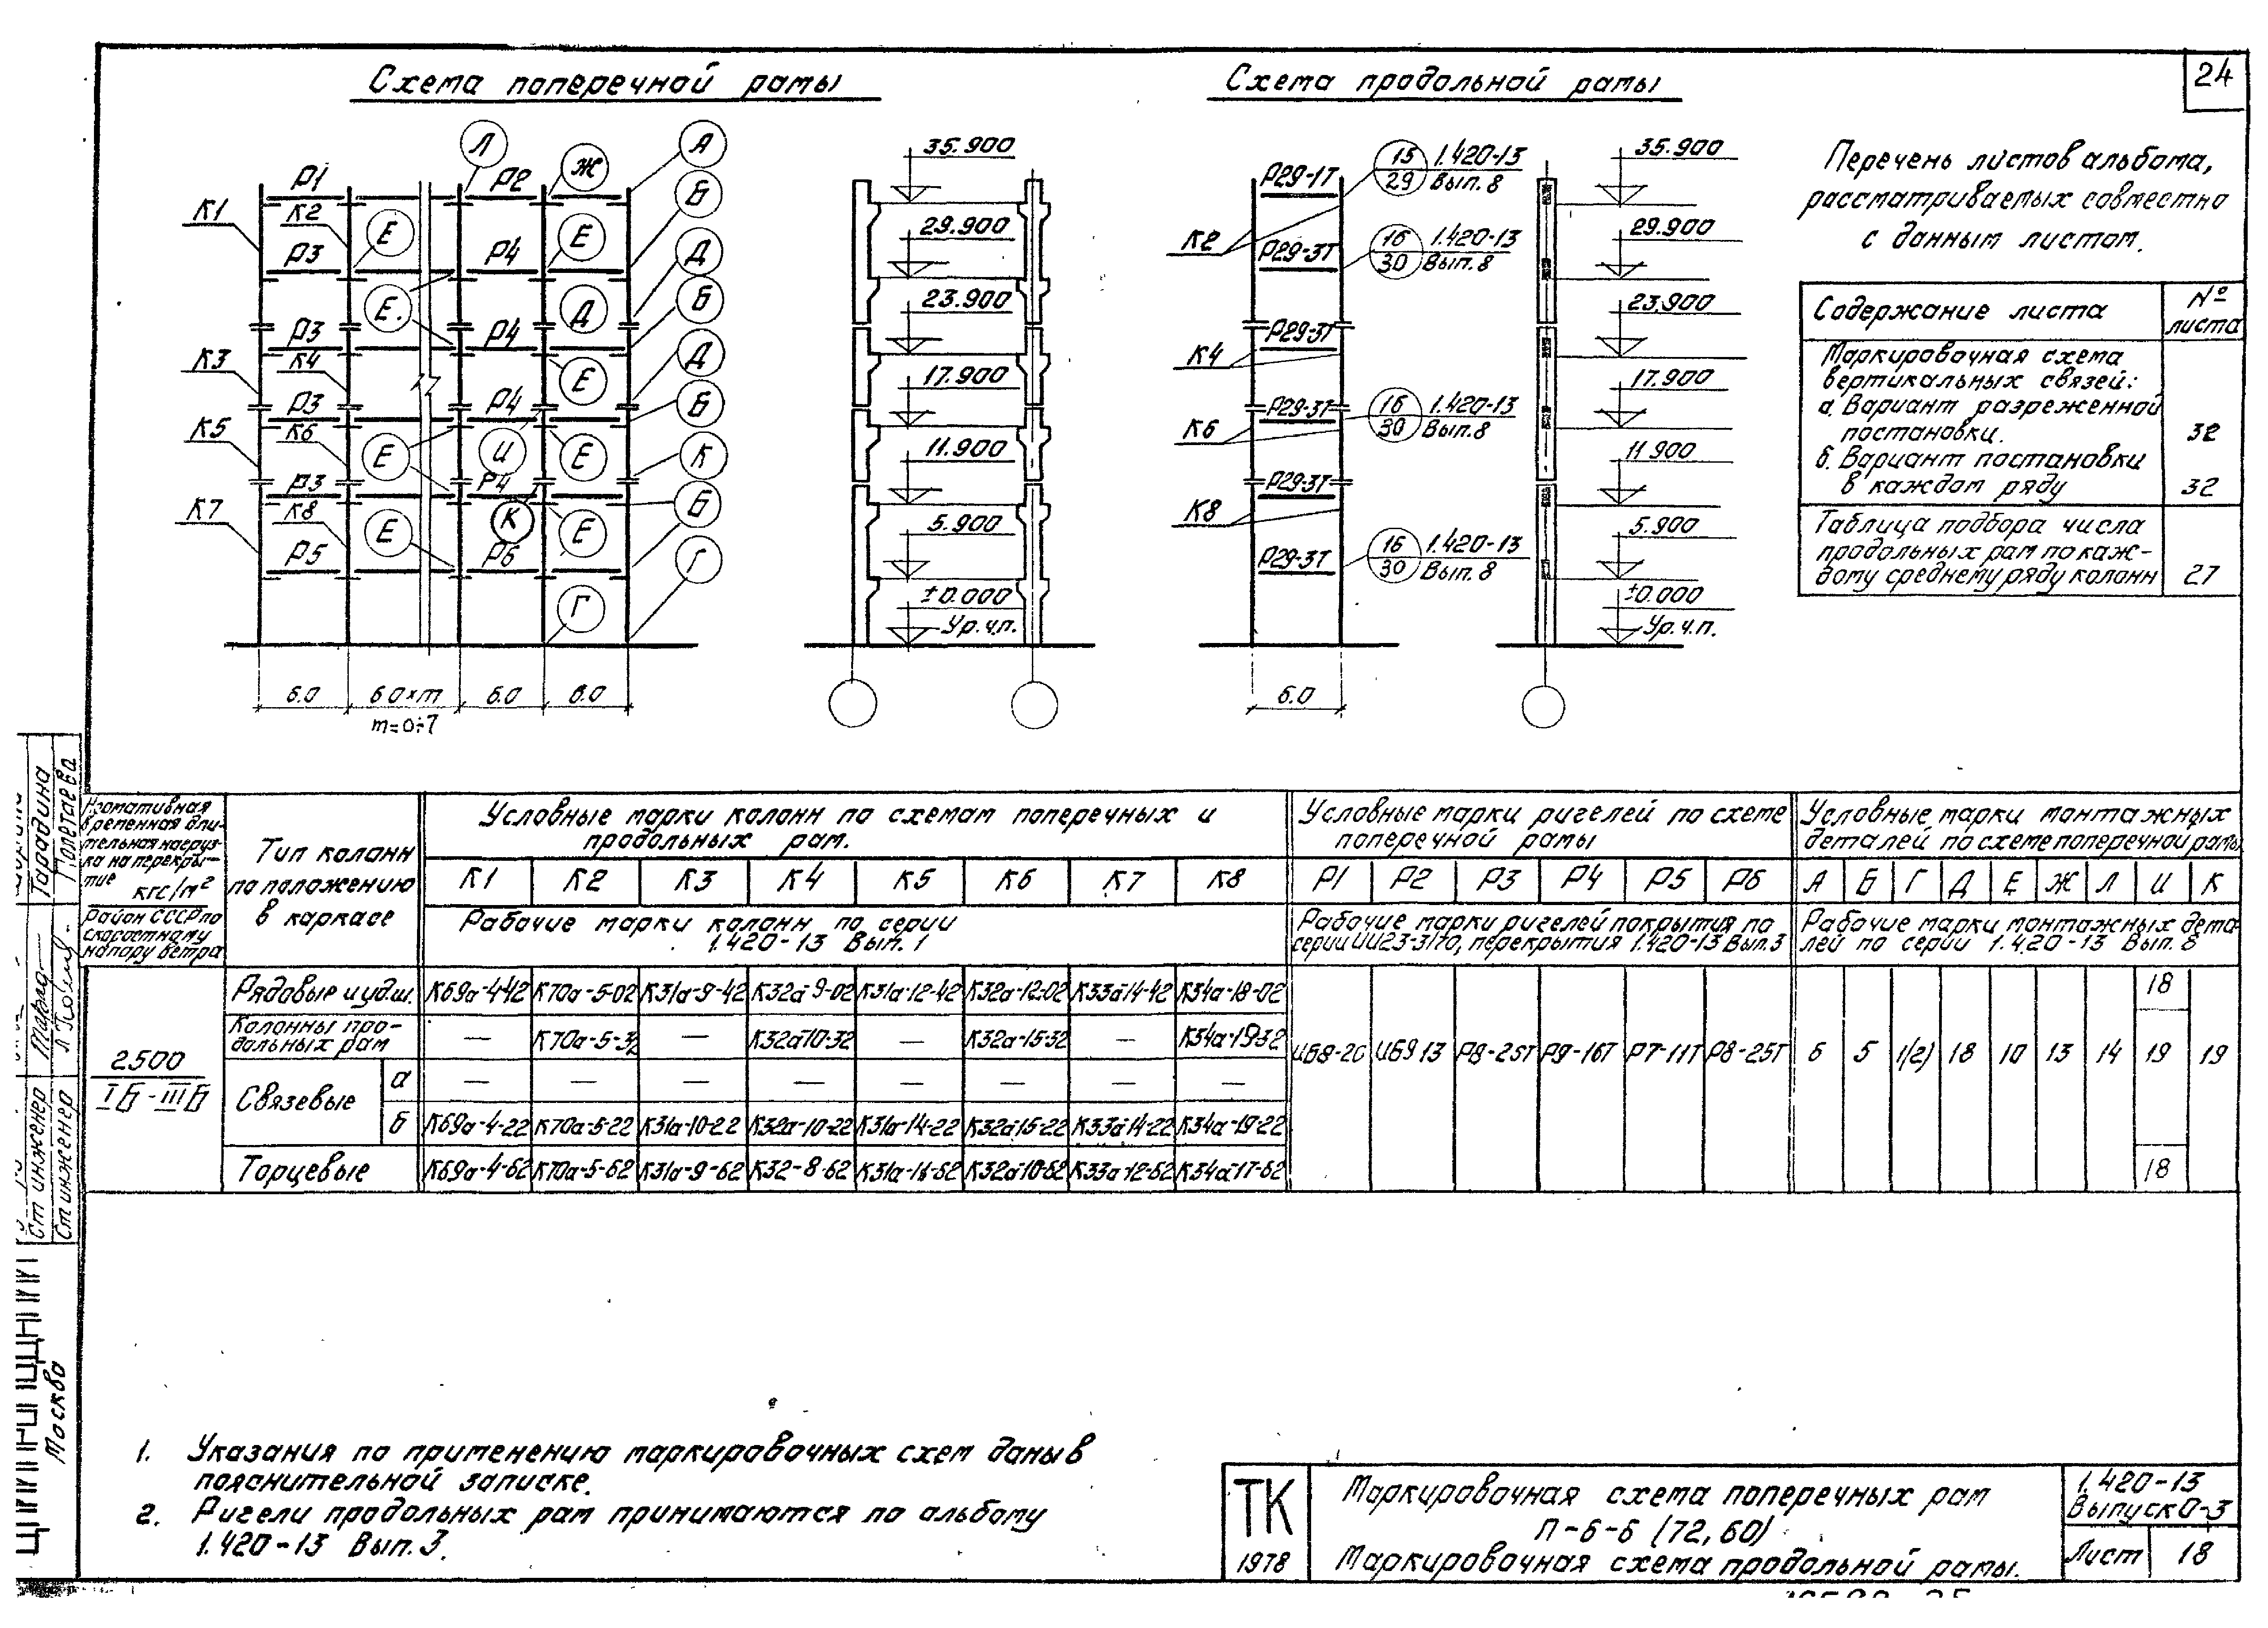 24
Схема поперечной рамы
Р1
Р2
К1
К2
Р3
Р4
Р3
Р4
К3
К4
Р3
Р4
К5
К6
Р3
Р4
К7
К8
Р5
Р6
Л
Ж
А
Б
Е
Е
Д
Е
Д
Б
Е
Д
Б
Е
И
Е
К
Б
Е
К
Е
Г
Г
6.0
6.0×m
6.0
6.0
m=0÷7
35.900
29.900
23.900
17.900
11.900
5.900
±0.000
Ур.ч.п.
Схема продольной рамы
Р29-1Т
15
29
1.420-13
Вып. 8
К2
Р29-3Т
16
30
1.420-13
Вып. 8
Р29-3Т
К4
Р29-3Т
16
30
1.420-13
Вып. 8
К6
Р29-3Т
К8
Р29-3Т
16
30
1.420-13
Вып. 8
6.0
35.900
29.900
23.900
17.900
11.900
5.900
±0.000
Ур.ч.п.
Перечень листов альбома,
рассматриваемых совместно
с данным листом.
Содержание листа
№
листа
Маркировочная схема
вертикальных связей:
а. Вариант разреженной
постановки.
32
б. Вариант постановки
в каждом ряду
32
Таблица подбора числа
продольных рам по каж-
дому среднему ряду колонн
27
Нормативная
временная дли-
тельная нагруз-
ка на перекры-
тие
кгс/м²
Район СССР по
скоростному
напору ветра
Тип колонн
по положению
в каркасе
Условные марки колонн по схемам поперечных и
продольных рам.
К1 К2 К3 К4 К5 К6 К7 К8
Рабочие марки колонн по серии
1.420-13 Вып. 1
Условные марки ригелей по схеме
поперечной рамы
Р1 Р2 Р3 Р4 Р5 Р6
Рабочие марки ригелей покрытия по
серии ИИ23-3/70, перекрытия 1.420-13 Вып.3
Условные марки монтажных
деталей по схеме поперечной рамы
А Б Г Д Е Ж Л И К
Рабочие марки монтажных дета-
лей по серии 1.420-13 Вып. 8
2500
IБ-IIIБ
Рядовые и уд.ш. К69а-4-42 К70а-5-02 К31а-9-42 К32а-9-02 К31а-12-42 К32а-12-02 К33а-14-42 К34а-18-02
Колонны про-
дольных рам
— К70а-5-32 — К32а-10-32 — К32а-15-32 — К34а-19-32
Связевые
а — — — — — — — —
б К69а-4-22 К70а-5-22 К31а-10-22 К32а-10-22 К31а-14-22 К32а-15-22 К33а-14-22 К34а-19-22
Торцевые К69а-4-62 К70а-5-62 К31а-9-62 К32-8-62 К31а-11-62 К32а-10-62 К33а-12-62 К34а-17-62
ИБ8-20 ИБ9 13 Р8-25Т Р9-16Т Р7-11Т Р8-25Т
6 5 1(2) 18 10 13 14 19 19
18
18
1. Указания по применению маркировочных схем даны в
пояснительной записке.
2. Ригели продольных рам принимаются по альбому
1.420-13 Вып. 3.
ТК
1978
Маркировочная схема поперечных рам
П-6-6 (72, 60)
Маркировочная схема продольной рамы.
1.420-13
Выпуск 0-3
Лист 18
Ст инженер
Ст инженер
Тарадина
Полетаева
Москва